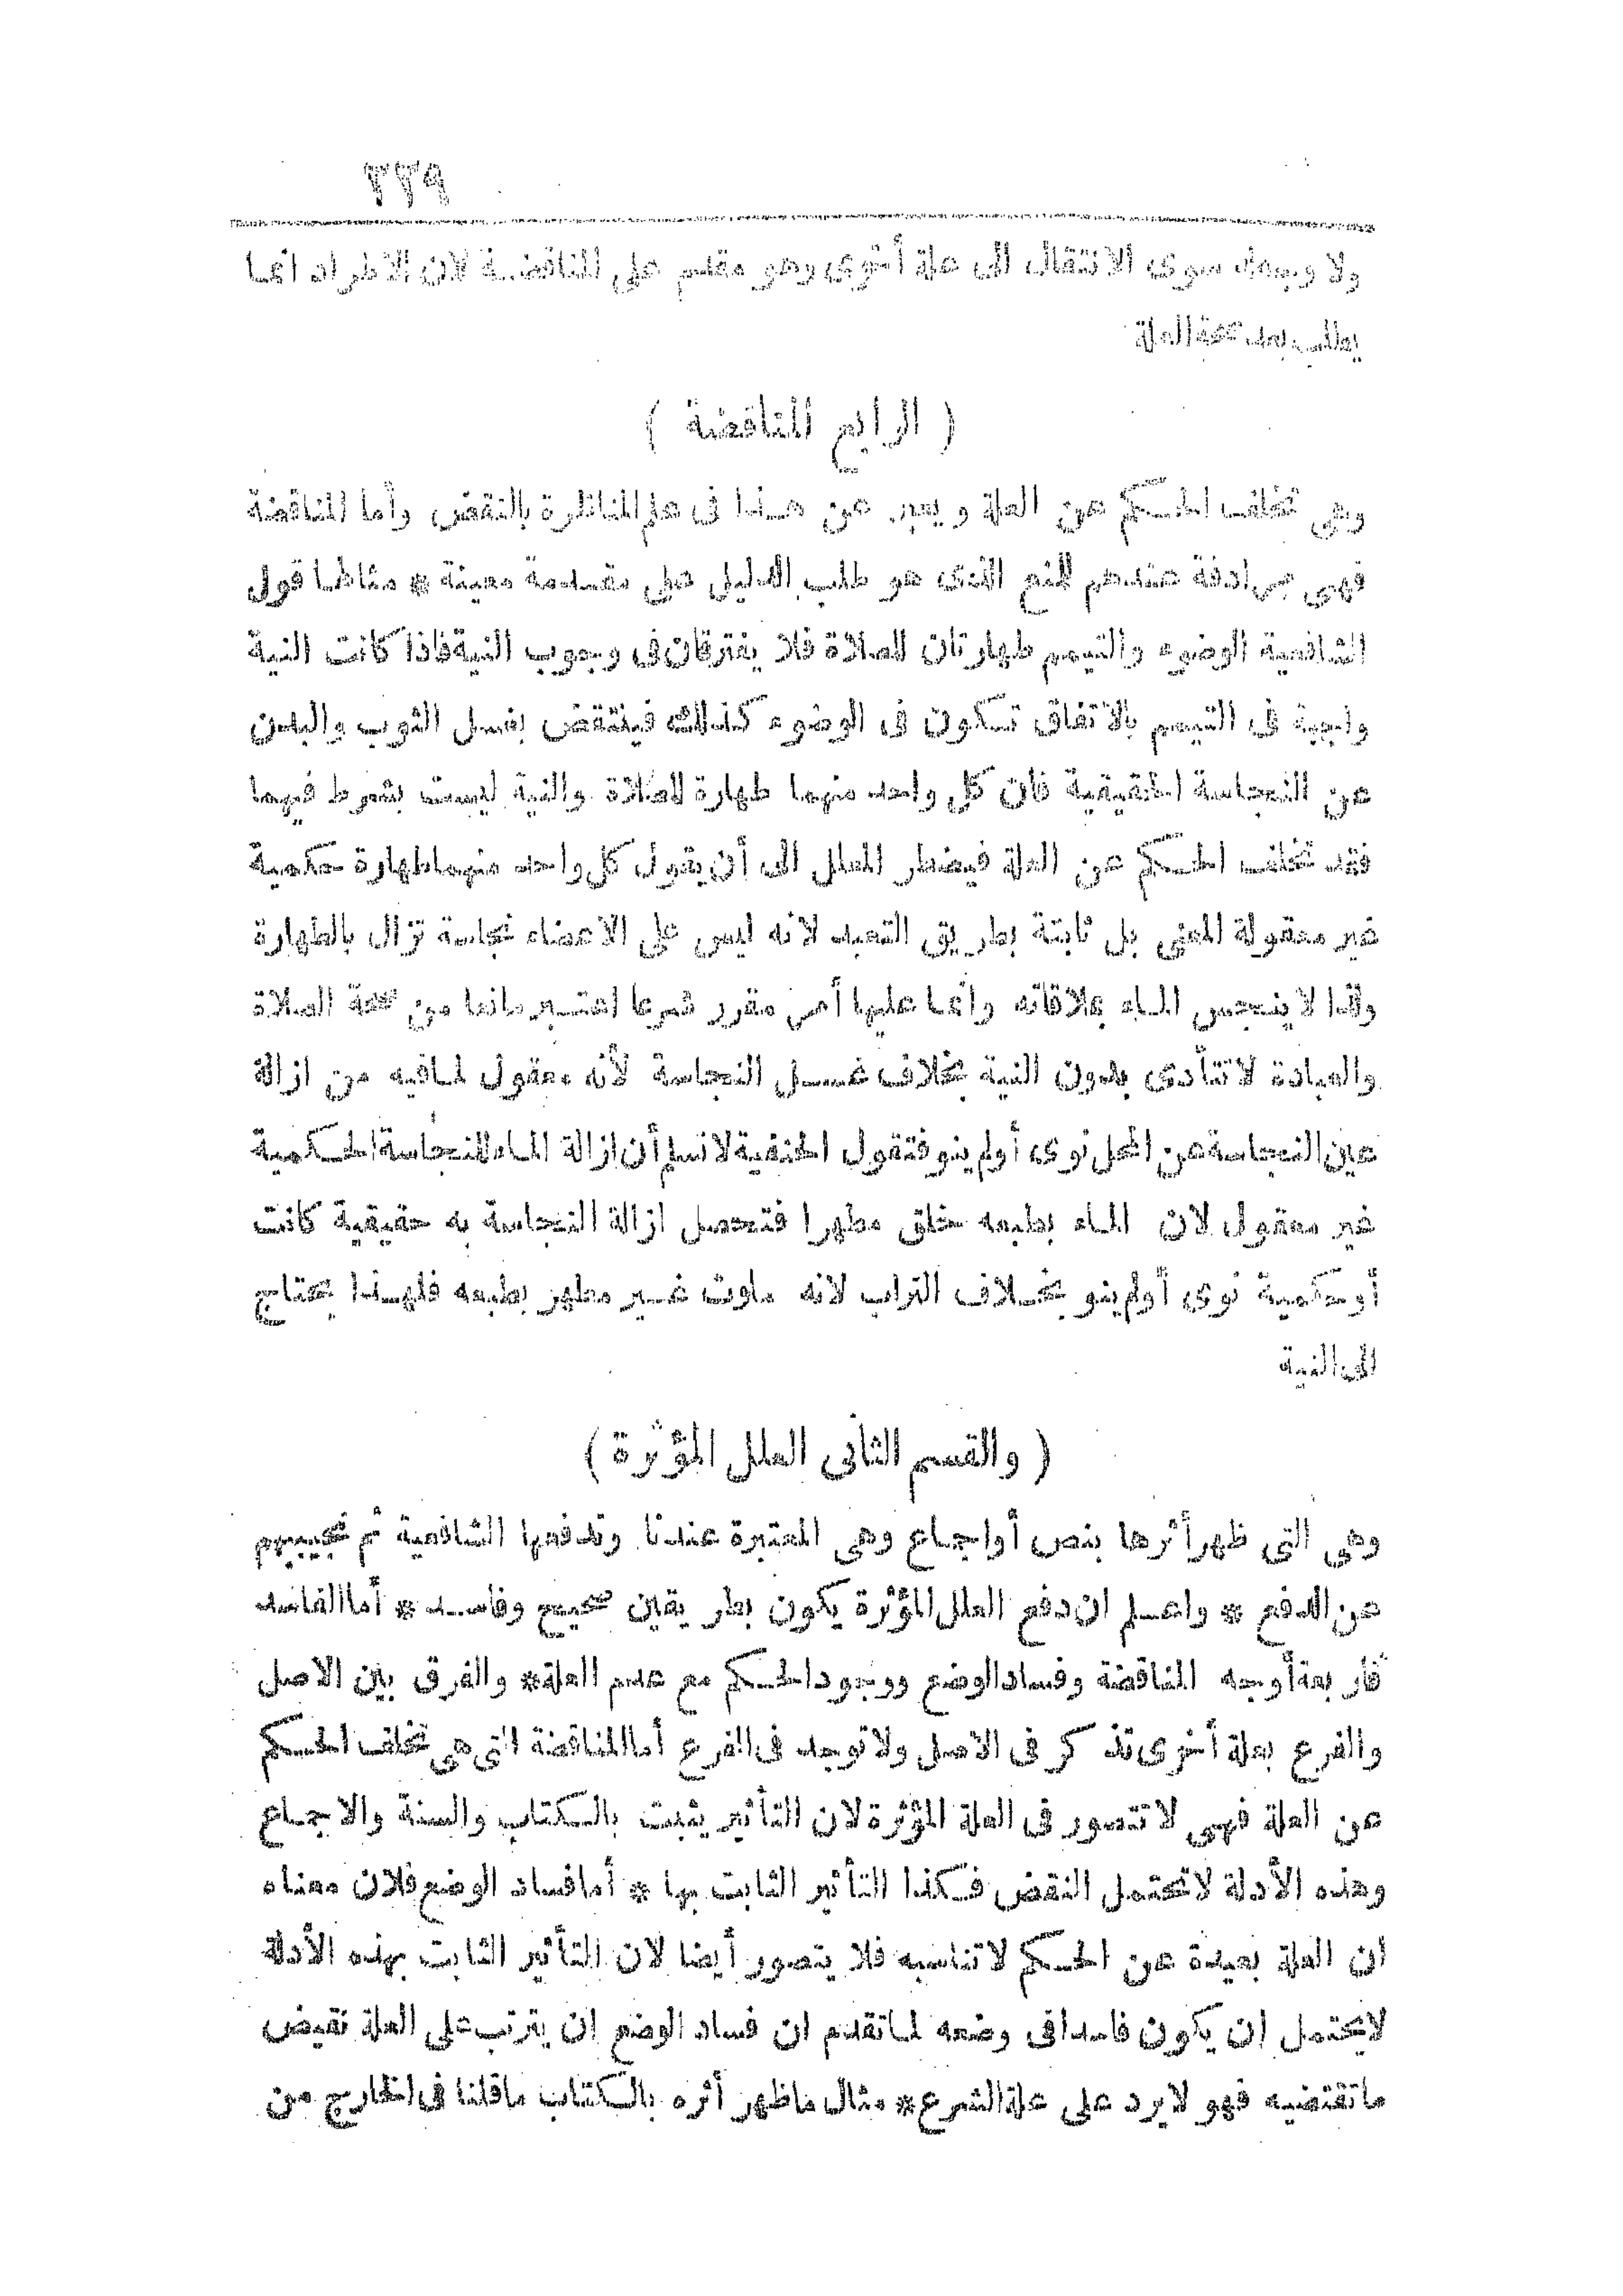 ٢٢٩
ولا وجه له سوى الانتقال الى علة أخرى وهو مقدم على المناقضة لان الاطراد انما
يطلب بعد صحة العلة
( الرابع المناقضة )
وهى تخلف الحكم عن العلة ويعبر عن هذا فى علم المناظرة بالنقض وأما المناقضة
فهى مرادفة عندهم للمنع الذى هو طلب الدليل على مقدمة معينة * مثالها قول
الشافعية الوضوء والتيمم طهارتان للصلاة فلا يفترقان فى وجوب النية فاذا كانت النية
واجبة فى التيمم بالاتفاق تكون فى الوضوء كذلك فينتقض بغسل الثوب والبدن
عن النجاسة الحقيقية فان كل واحد منهما طهارة للصلاة والنية ليست بشرط فيهما
فقد تخلف الحكم عن العلة فيضطر المعلل الى أن يقول كل واحد منهما طهارة حكمية
غير معقولة المعنى بل ثابتة بطريق التعبد لانه ليس على الاعضاء نجاسة تزال بالطهارة
ولذا لا ينجس الماء بملاقاته وانما عليها أمر مقرر شرعا اعتبر مانعا من صحة الصلاة
والعبادة لا تتأدى بدون النية بخلاف غسل النجاسة لأنه معقول لما فيه من ازالة
عين النجاسة عن المحل نوى أولم ينو فتقول الحنفية لا نسلم أن ازالة الماء للنجاسة الحكمية
غير معقول لان الماء بطبعه خلق مطهرا فتحصل ازالة النجاسة به حقيقية كانت
أو حكمية نوى أولم ينو بخلاف التراب لانه ملوث غير مطهر بطبعه فلهذا يحتاج
الى النية
( والقسم الثانى العلل المؤثرة )
وهى التى ظهر أثرها بنص أو اجماع وهى المعتبرة عندنا وتدفعها الشافعية ثم نجيبهم
عن الدفع * واعلم ان دفع العلل المؤثرة يكون بطريقين صحيح وفاسد * أما الفاسد
فأربعة أوجه المناقضة وفساد الوضع ووجود الحكم مع عدم العلة * والفرق بين الاصل
والفرع بعلة أخرى تذكر فى الاصل ولا توجد فى الفرع أما المناقضة التى هى تخلف الحكم
عن العلة فهى لا تتصور فى العلة المؤثرة لان التأثير يثبت بالكتاب والسنة والاجماع
وهذه الأدلة لا تحتمل النقض فكذا التأثير الثابت بها * أما فساد الوضع فلان معناه
ان العلة بعيدة عن الحكم لا تناسبه فلا يتصور أيضا لان التأثير الثابت بهذه الأدلة
لا يحتمل ان يكون فاسدا فى وضعه لما تقدم ان فساد الوضع ان يترتب على العلة نقيض
ما تقتضيه فهو لا يرد على علة الشرع * مثال ما ظهر أثره بالكتاب ما قلنا فى الخارج من